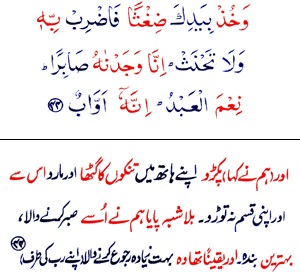 وَخُذْ بِيَدِكَ ضِغْثًا فَاضْرِبْ بِّهٖ
وَلَا تَحْنَثْ ؕ اِنَّا وَجَدْنٰهُ صَابِرًا ؕ
نِعْمَ الْعَبْدُ ؕ اِنَّهٗۤ اَوَّابٌ ﴿۴۴﴾
اور (ہم نے کہا) پکڑو اپنے ہاتھ میں تنکوں کا گٹھا اور مارو اس سے
اور اپنی قسم نہ توڑو۔ بلاشبہ پایا ہم نے اُسے صبر کرنے والا،
بہترین بندہ۔ اور یقیناً تھا وہ بہت زیادہ رجوع کرنے والا (اپنے رب کی طرف) ﴿۴۴﴾